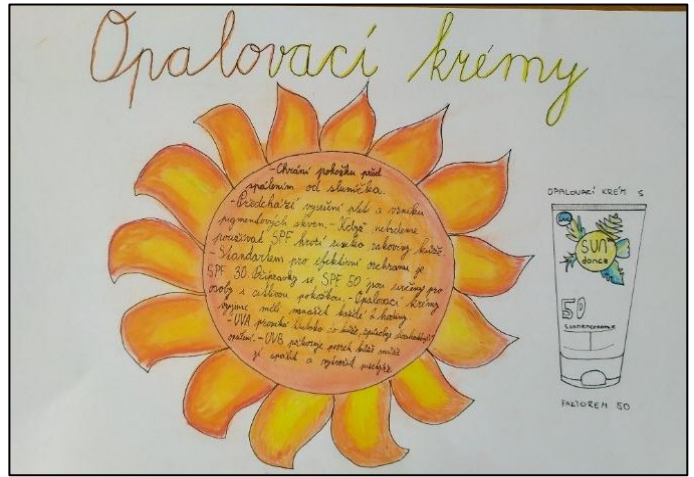 Opalovací krémy
-Chrání pokožku před
spálením od sluníčka.
-Předchází vysušení pleti a vzniku
pigmentových skvrn.-Když nebudeme
používat SPF hrozí riziko rakoviny kůže.
-Standartem pro efektivní ochranu je
SPF 30. Přípravky se SPF 50 jsou určeny pro
osoby s citlivou pokožkou.-Opalovací krémy
bychom měli nanášet každé 2 hodiny
-UVA proniká hluboko do kůže, způsobuje
opálení.-UVB povrch kůže může
ji spálit a vytvořit puchýře
OPALOVACÍ KRÉM S
SUN
dance
50
FAKTOREM 50